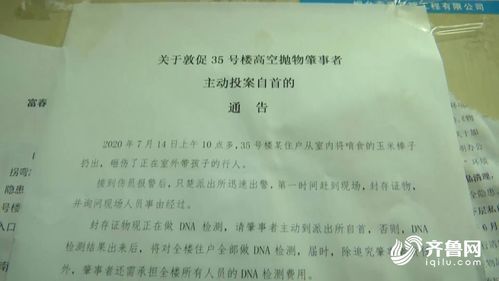 关于敦促35号楼高空抛物肇事者
主动投案自首的
通 告
2020年7月14日上午10点多，35号楼某住户从室内将啃食的玉米棒子
扔出，砸伤了正在室外带孩子的行人。
接到伤员报警后，只楚派出所迅速出警，第一时间赶到现场，封存证物，
并询问现场人员事由经过。
封存证物现正在做DNA检测，请肇事者主动到派出所自首，否则，DNA
检测结果出来后，将对全楼住户全部做DNA检测，届时，除追究肇
外，肇事者还需承担全楼所有人员的DNA检测费用。
富春
拐弯
隐患
号楼
入口
南
工程有限公司
齐鲁网
iqilu.com